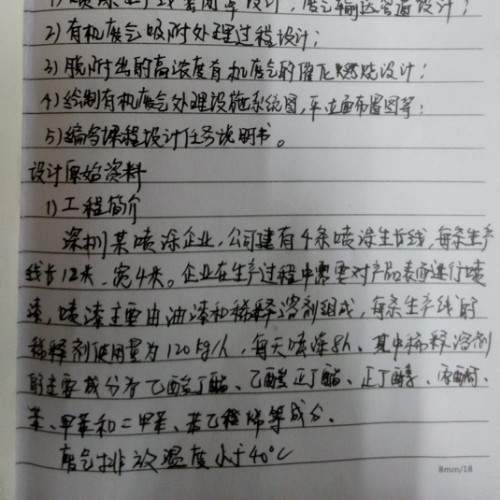 1)喷涂生产线集图罩设计,废气输送管道设计;
2)有机废气吸附处理过程设计;
3)脱附出的高浓度有机废气的催化燃烧设计;
4)绘制有机废气处理设施系统图,平立面布置图等;
5)编写课程设计任务说明书。
设计原始资料
1)工程简介
深圳某喷涂企业,公司建有4条喷涂生产线,每条生产
线长12米、宽4米。企业在生产过程中需要对产品表面进行喷
漆,喷漆主要由油漆和稀释溶剂组成,每条生产线的
稀释剂使用量为120kg/天,每天喷漆8h、其中稀释溶剂
的主要成分有乙酸丁酯、乙酸正丁酯、正丁醇、丙酮、
苯、甲苯和二甲苯、苯乙烯等成分。
废气排放温度小于40°C
8mm/18